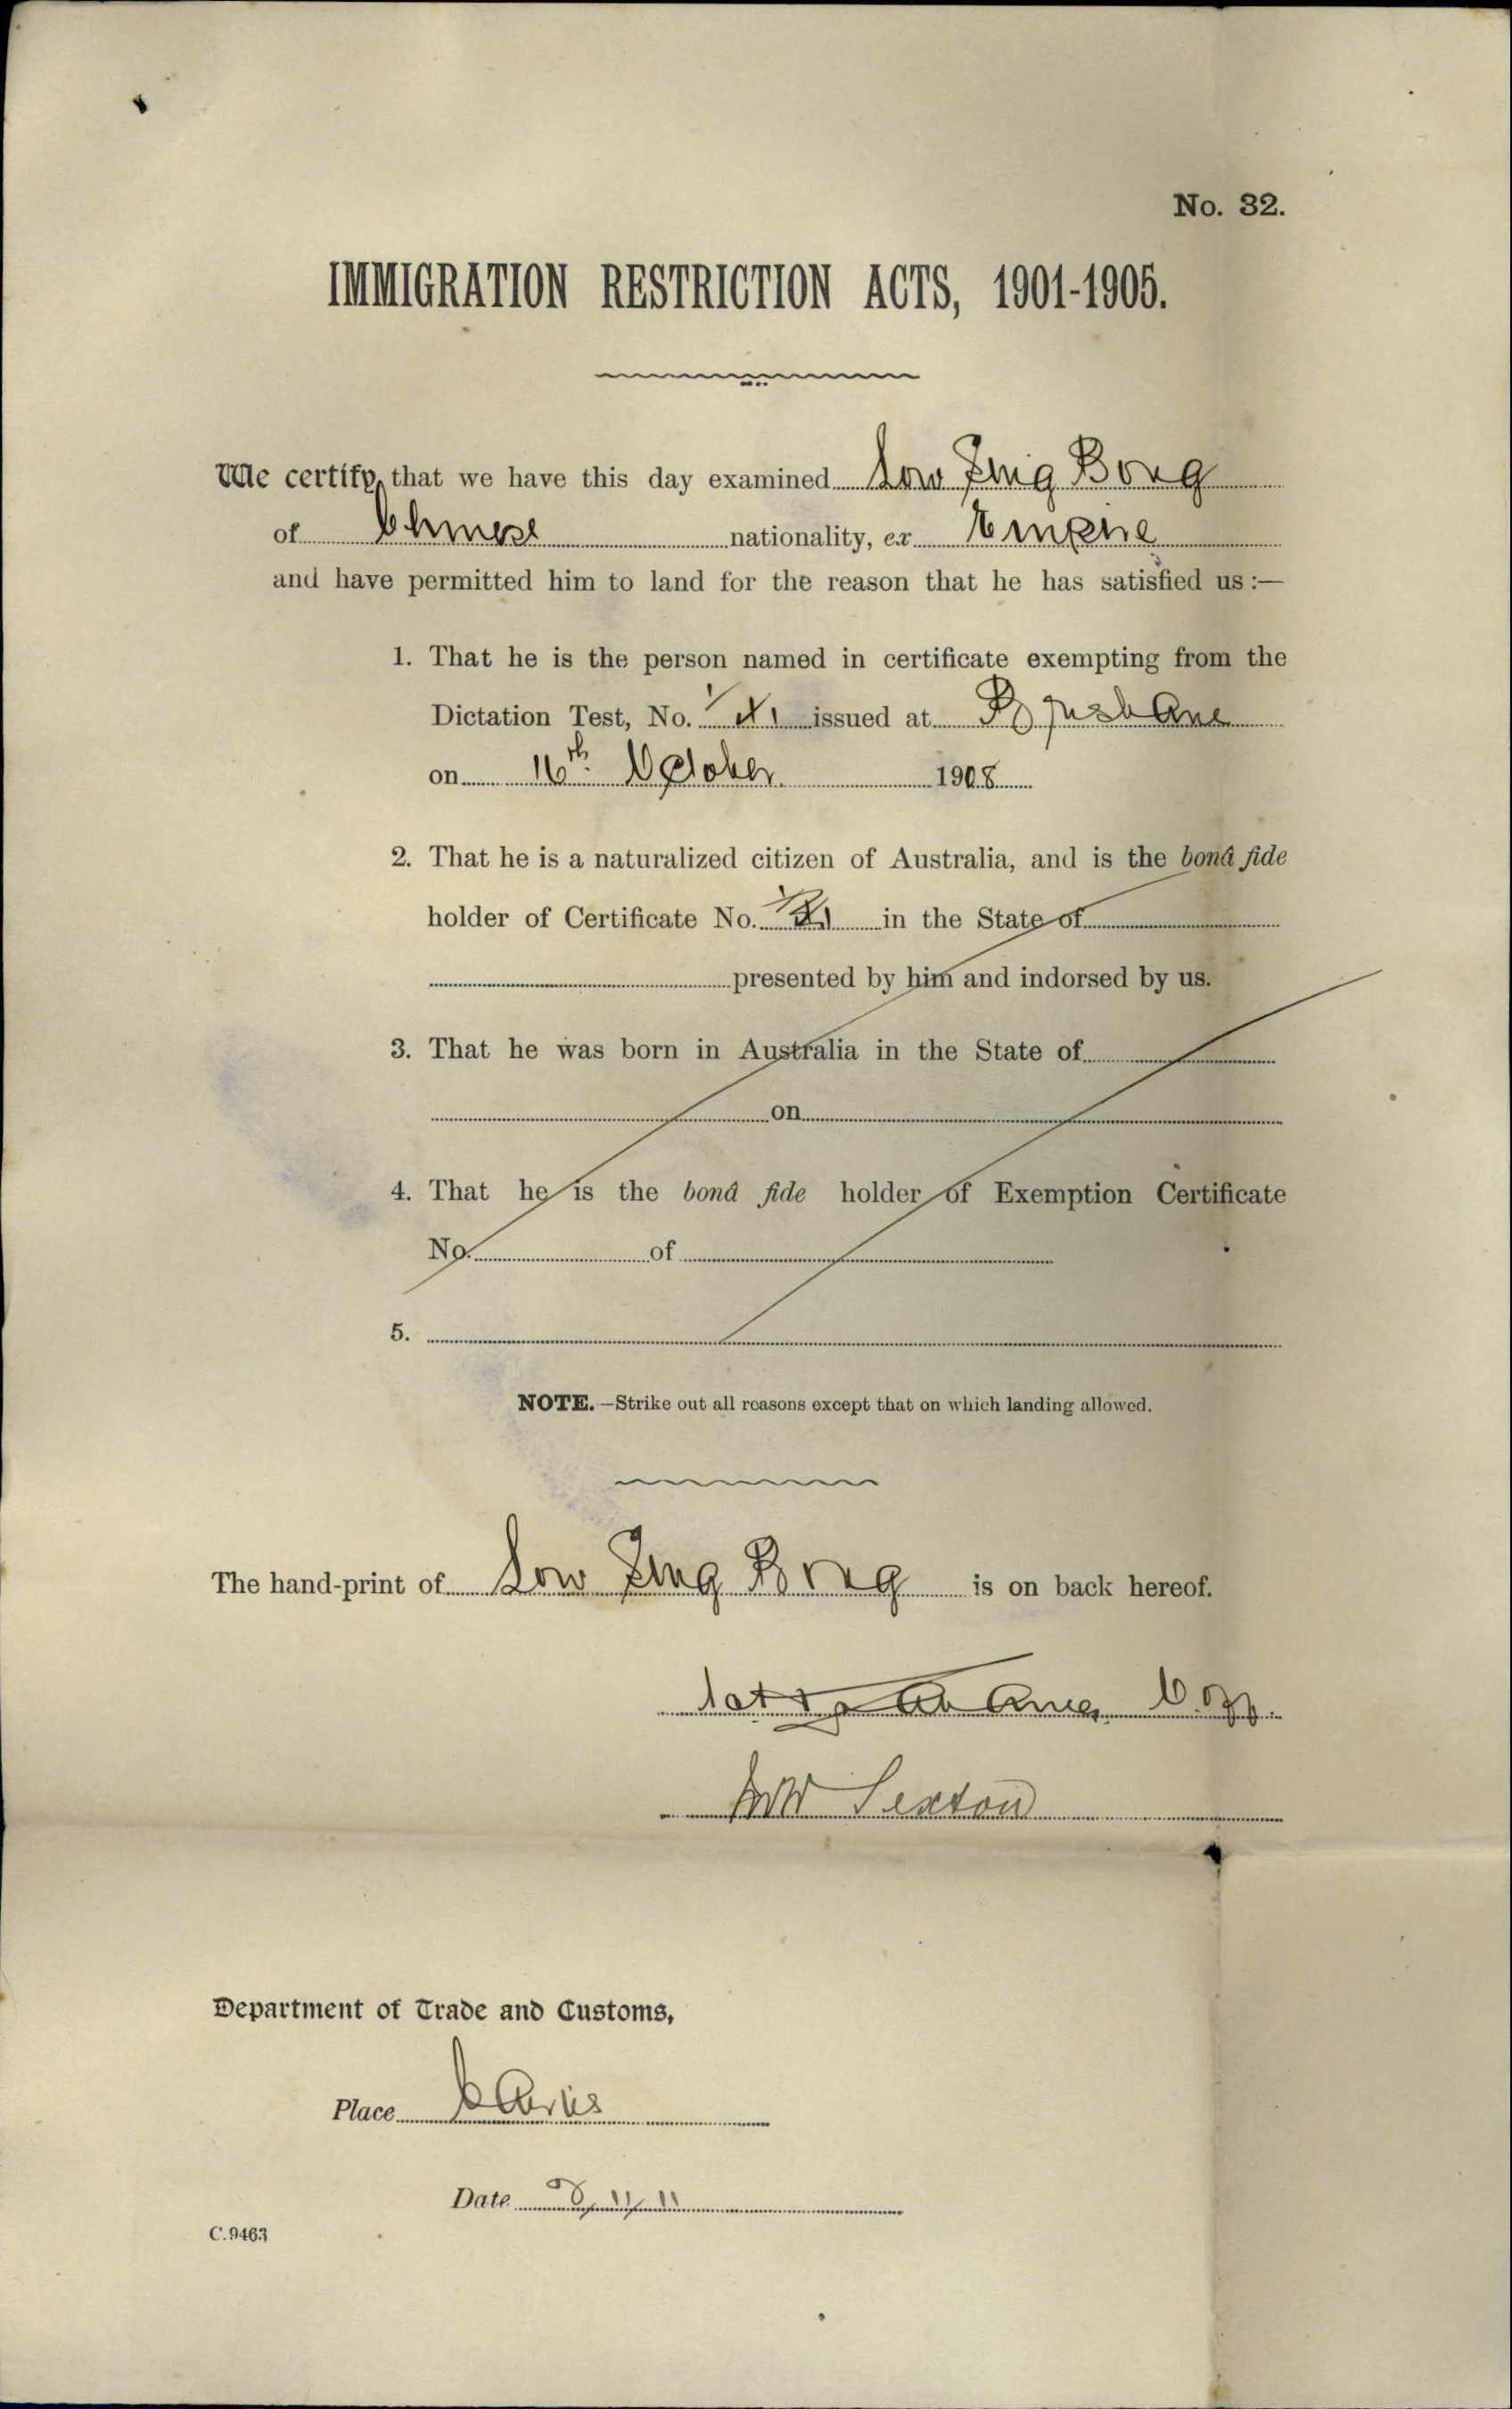 No. 32.
IMMIGRATION RESTRICTION ACTS, 1901-1905.
We certify, that we have this day examined Low Fing Bong
of Chinese nationality, ex Empire
and have permitted him to land for the reason that he has satisfied us :—
1. That he is the person named in certificate exempting from the
Dictation Test, No. issued at Brisbane
on 16th October 1908
2. That he is a naturalized citizen of Australia, and is the bonâ fide
holder of Certificate No. in the State of
presented by him and indorsed by us.
3. That he was born in Australia in the State of
on
4. That he is the bonâ fide holder of Exemption Certificate
No. of
5.
NOTE.—Strike out all reasons except that on which landing allowed.
The hand-print of Low Fing Bong is on back hereof.
Sexton
Department of Trade and Customs,
Place Cairns
Date 8/11/11
C.9463